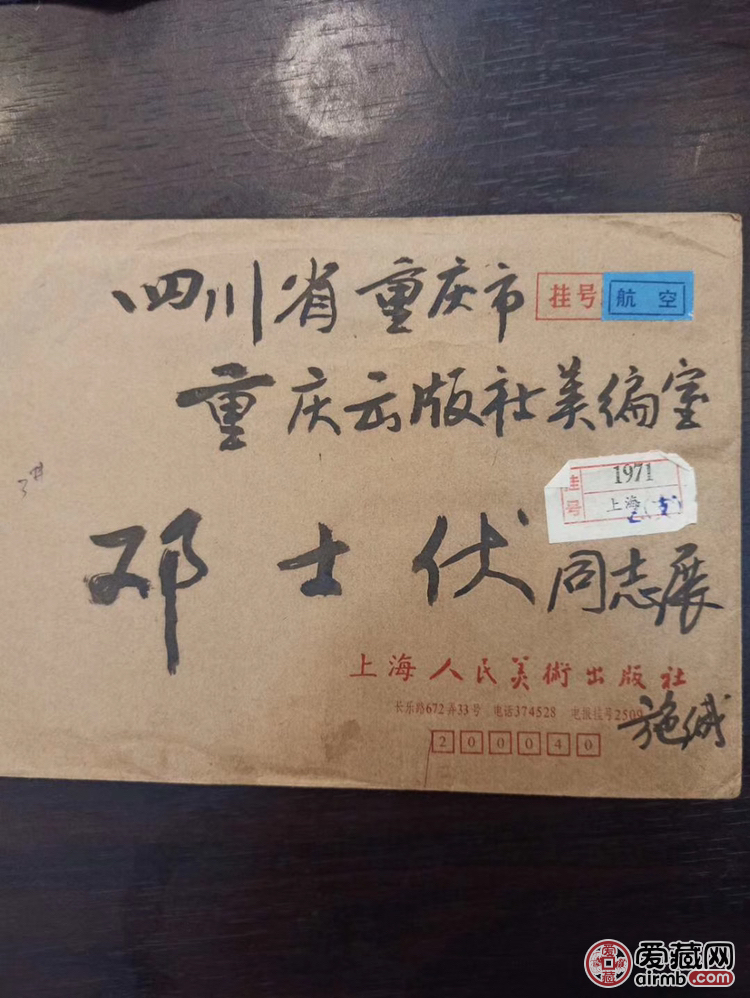 四川省重庆市
挂号 航空
重庆出版社美编室
挂号 1971
上海 (支)
邓士伏同志展
上海人民美術出版社
长乐路672弄33号 电话374528 电报挂号2509
施缄
200040
爱藏网
airmb.com